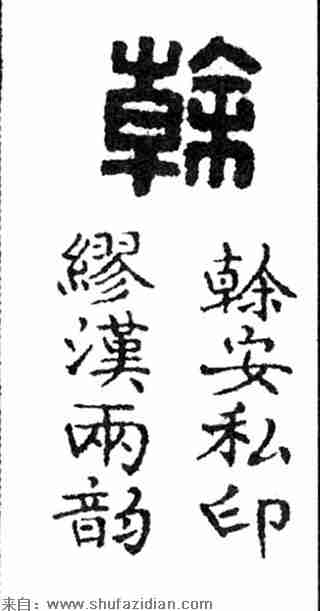 榦
榦安私印
繆漢兩韵
来自：www.shufazidian.com